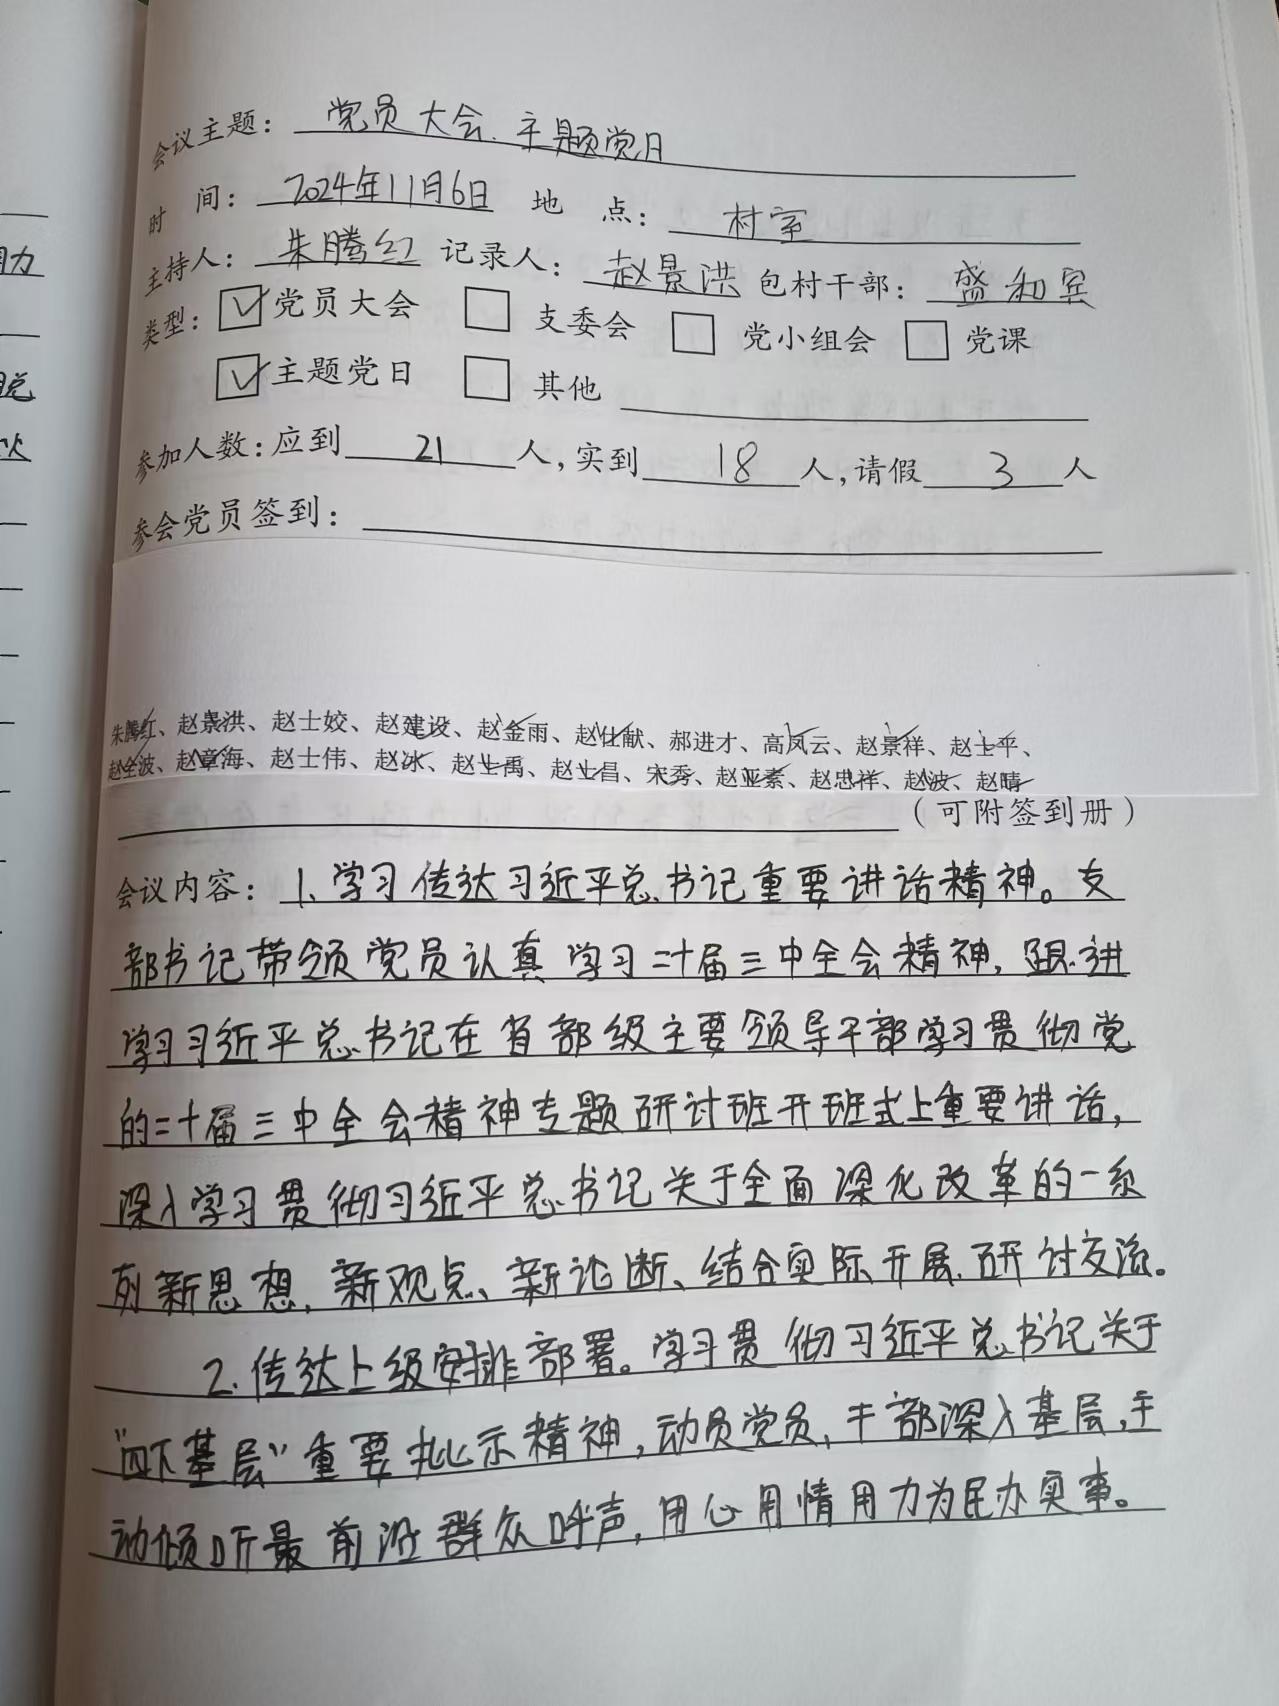 会议主题：党员大会、主题党日
时 间：2024年11月6日 地 点：村室
主持人：朱腾红 记录人：赵景洪 包村干部：盛和宾
类型：☑党员大会 □支委会 □党小组会 □党课
☑主题党日 □其他
参加人数：应到21人，实到18人，请假3人
参会党员签到：
朱腾红、赵景洪、赵士姣、赵建设、赵金雨、赵仕献、郝进才、高凤云、赵景祥、赵士平、
赵全波、赵章海、赵士伟、赵冰、赵士禹、赵士昌、宋秀、赵亚素、赵忠祥、赵波、赵晴
（可附签到册）
会议内容：1、学习传达习近平总书记重要讲话精神。支
部书记带领党员认真学习二十届三中全会精神，跟进
学习习近平总书记在省部级主要领导干部学习贯彻党
的二十届三中全会精神专题研讨班开班式上重要讲话，
深入学习贯彻习近平总书记关于全面深化改革的一系
列新思想、新观点、新论断、结合实际开展研讨交流。
2、传达上级安排部署。学习贯彻习近平总书记关于
“四下基层”重要批示精神，动员党员、干部深入基层，主
动倾听最前沿群众呼声，用心用情用力为民办实事。